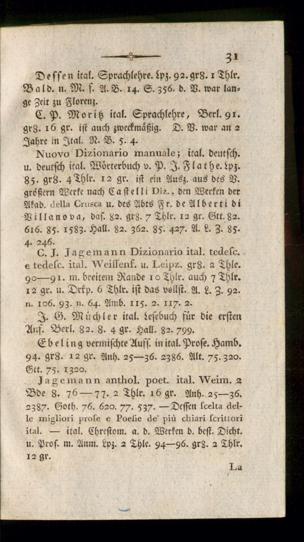 31
Dessen ital. Sprachlehre. Lpz. 92. gr8. 1 Thlr.
Bald. n. M. f. A. B. 14. S. 356. d. V. war lan-
ge Zeit zu Florenz.
C. P. Moritz ital. Sprachlehre, Berl. 91.
gr8. 16 gr. ist auch zweckmäßig. D. V. war an 2
Jahre in Ital. N. B. 5. 4.
Nuovo Dizionario manuale; ital. deutsch.
u. deutsch ital. Wörterbuch v. P. J. Flathe. Lpz.
85. gr8. 4 Thlr. 12 gr. ist ein Ausz. aus des V.
größern Werke nach Castelli Diz., den Werken der
Akad. della Crusca u. des Abts Fr. de Alberti di
Villanova, das. 82. gr8. 7 Thlr. 12 gr. Gtt. 82.
616. 85. 1583. Hall. 82. 362. 85. 427. A. L. Z. 85.
4. 246.
C. J. Jagemann Dizionario ital. tedesc.
e tedesc. ital. Weissenf. u. Leipz. gr8. 2 Thle.
90—91. m. breitem Rande 10 Thlr. auch 7 Thlr.
12 gr. u. Drkp. 6 Thlr. ist das vollst. A. L. Z. 92.
n. 106. 93. n. 64. Amb. 115. 2. 117. 2.
J. G. Müchler ital. Lesebuch für die ersten
Anf. Berl. 82. 8. 4 gr. Hall. 82. 799.
Ebeling vermischte Auff. in ital. Prose. Hamb.
94. gr8. 12 gr. Anh. 25—36. 2386. Alt. 75. 320.
Gtt. 75. 1320.
Jagemann anthol. poet. ital. Weim. 2
Bde 8. 76—77. 2 Thlr. 16 gr. Anh. 25—36.
2387. Goth. 76. 620. 77. 537. — Dessen scelta del-
le migliori prose e Poesie de' più chiari scrittori
ital. — ital. Chrestom. a. d. Werken d. best. Dicht.
u. Pros. m. Anm. Lpz. 2 Thle. 94—96. gr8. 2 Thlr.
12 gr.
La